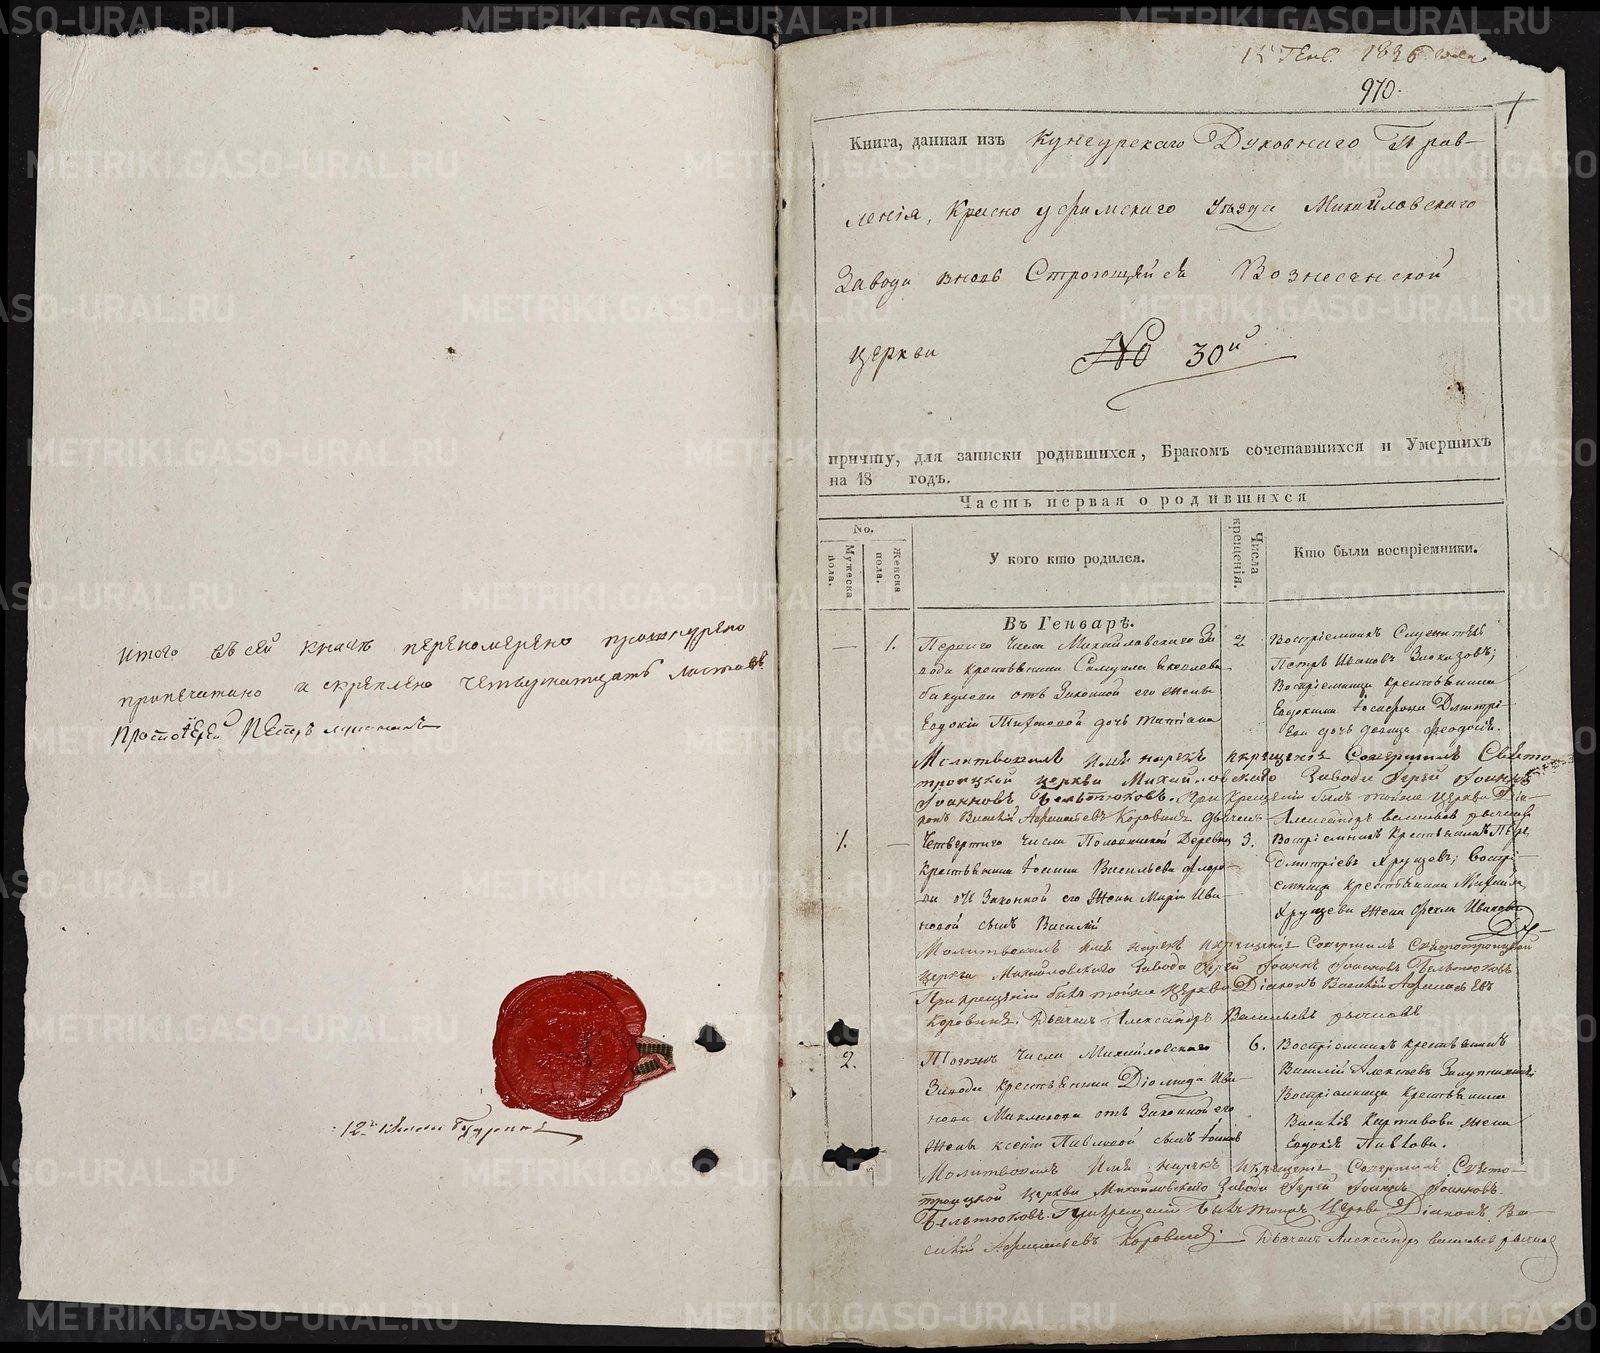 Итого въ сей книгѣ переномерено прошнурено
припечатано и скреплено четырнатцать листовъ
Протоіерей Петръ
12
1836 года
970.
Книга, данная изъ Кунгурскаго Духовнаго Прав-
ленія, Красноуфимскаго Уѣзда Михайловскаго
Завода вновь Строющейся Вознесенской
церкви No 30й
причту, для записки родившихся, Бракомъ сочетавшихся и Умершихъ
на 18 годъ.
Часть первая о родившихся
No.
Мужеска пола.
Женска пола.
У кого кто родился.
Числа крещенія.
Кто были воспріемники.
Въ Генварѣ.
1.
Перваго Числа Михайловскаго За-
вода крестьянина Самуила Яковлева
Бакулева отъ Законной его жены
Евдокіи Тихоновой дочь Татіана
2.
Воспріемникъ Служитель
Петръ Ивановъ Злоказовъ;
Воспріемница крестьянина
Евдокима Дмитрі-
ева дочь девица Феодосія.
Молитвовалъ имя нарекъ икрещеніе Совершилъ Свято
троицкой церкви Михайловскаго Завода Іерей Іоаннъ
Іоанновъ Бельтюковъ. При крещеніи былъ тойже Церкви Діа-
конъ Василій Афанасьевъ Коровинъ Дьячекъ Александръ Васильевъ
1.
Четвертаго числа Деревни
Крестьянина Іоанна Васильева
отъ Законной его Жены Маріи Ива-
новой сынъ Василій
Воспріемникъ Крестьянинъ
Дмитріевъ Хрущевъ; Воспрі-
емница крестьянина Михаила
Хрущева жена Фекла Иванова
Молитвовалъ имя нарекъ икрещеніе Совершилъ Святотроицкой
церкви Михайловскаго Завода Іерей Іоаннъ Іоанновъ Бельтюковъ
При крещеніи былъ тойже Церкви Діаконъ Василій Афанасьевъ
Коровинъ. Дьячекъ Александръ Васильевъ
2.
Тогожъ Числа Михайловскаго
Завода Крестьянина Діомида Ива-
нова отъ Законной его
жены Ксеніи Павловой сынъ Іоаннъ
6.
Воспріемникъ крестьянинъ
Василій Алексѣевъ
Воспріемница Крестьянина
Василія жена
Евдокія Павлова.
Молитвовалъ Имя нарекъ икрещеніе Совершилъ Свято-
троицкой церкви Михайловскаго Завода Іерей Іоаннъ Іоанновъ
Бельтюковъ. При крещеніи былъ тойже Церкви Діаконъ Ва-
силій Афанасьевъ Коровинъ. Дьячекъ Александръ Васильевъ
METRIKI.GASO-URAL.RU